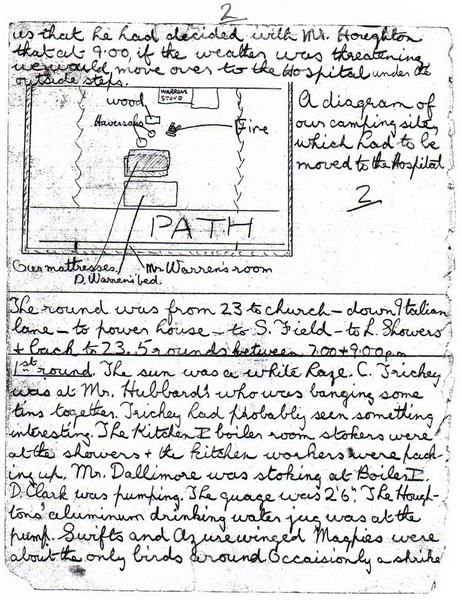 2
us that he had decided with Mr. Houghton
that at 9.00, if the weather was threatening
we would move over to the Hospital under the
outside steps.
WARREN'S
STOVE
wood
Haversacks
Fire
PATH
Our mattresses.
D. Warren's bed.
Mr Warren's room
A diagram of
our camping site,
which had to be
moved to the Hospital
2
The round was from 23 to church – down Italian
lane – to power house – to S. Field – to L. Showers
+ back to 23. 5 rounds between 7.00 + 9.00 p.m
1st round. The sun was a white haze. C. Trickey
was at Mr. Hubbard's who was banging some
tins together. Trickey had probably seen something
interesting. The Kitchen I boiler room stokers were
at the showers + the kitchen workers were pack-
ing up. Mr. Dallimore was stoking at Boiler I.
D Clark was pumping. The guage was 2'6". The Hough-
tons' aluminum drinking water jug was at the
pump. Swifts and Azurewinged Magpies were
about the only birds around Occaisionly a shrike